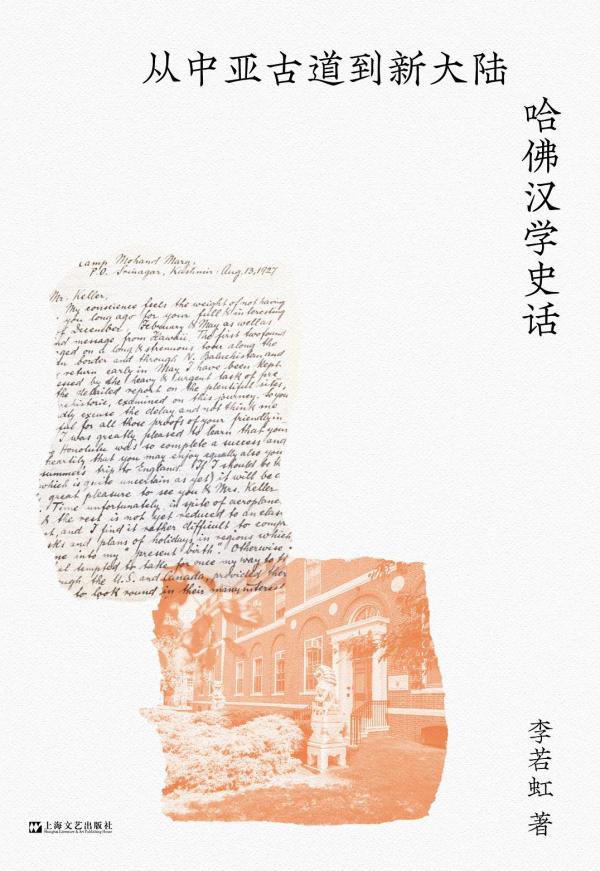 从中亚古道到新大陆
哈佛汉学史话
camp Mohand Marg,
P.O. Srinagar, Kashmir. Aug. 13, 1927
Mr. Keller,
My conscience feels the weight of not having
you long ago for your full & interesting
of December, February & May as well as
nd message from Hawaii. The first two found
ged on a long & strenuous tour along the
n border and through N. Baluchistan and
return early in May I have been kept
essed by the heavy & urgent task of pre
the detailed report on the plentiful sites,
rehistoric, examined on this journey. So you
dly excuse the delay and not think me
ful for all those proofs of your friendly in
I was greatly pleased to learn that your
Honolulu was so complete a success and
heartily that you may enjoy equally also you
summer's trip to England. If I should be
which is quite uncertain as yet) it will be a
great pleasure to see you & Mrs. Keller
Time unfortunately, in spite of aeroplane
& the rest is not yet reduced to an elas
t, and I find it rather difficult to compr
sks and plans of holidays in regions which
me into my "present birth". Otherwise
el tempted to take for once my way to
ugh the U.S. and Canada, provided ther
to look round in their many interest
李若虹 著
上海文艺出版社
Shanghai Literature & Art Publishing House